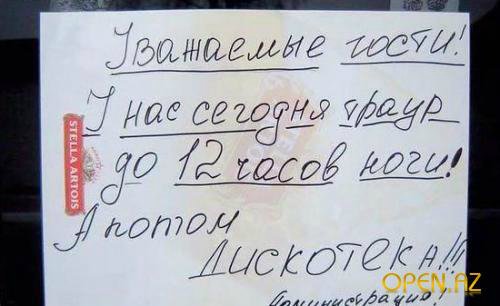 Уважаемые гости!
У нас сегодня траур
до 12 часов ночи!
А потом
дискотека!!!
Администрация!
STELLA ARTOIS
OPEN.AZ